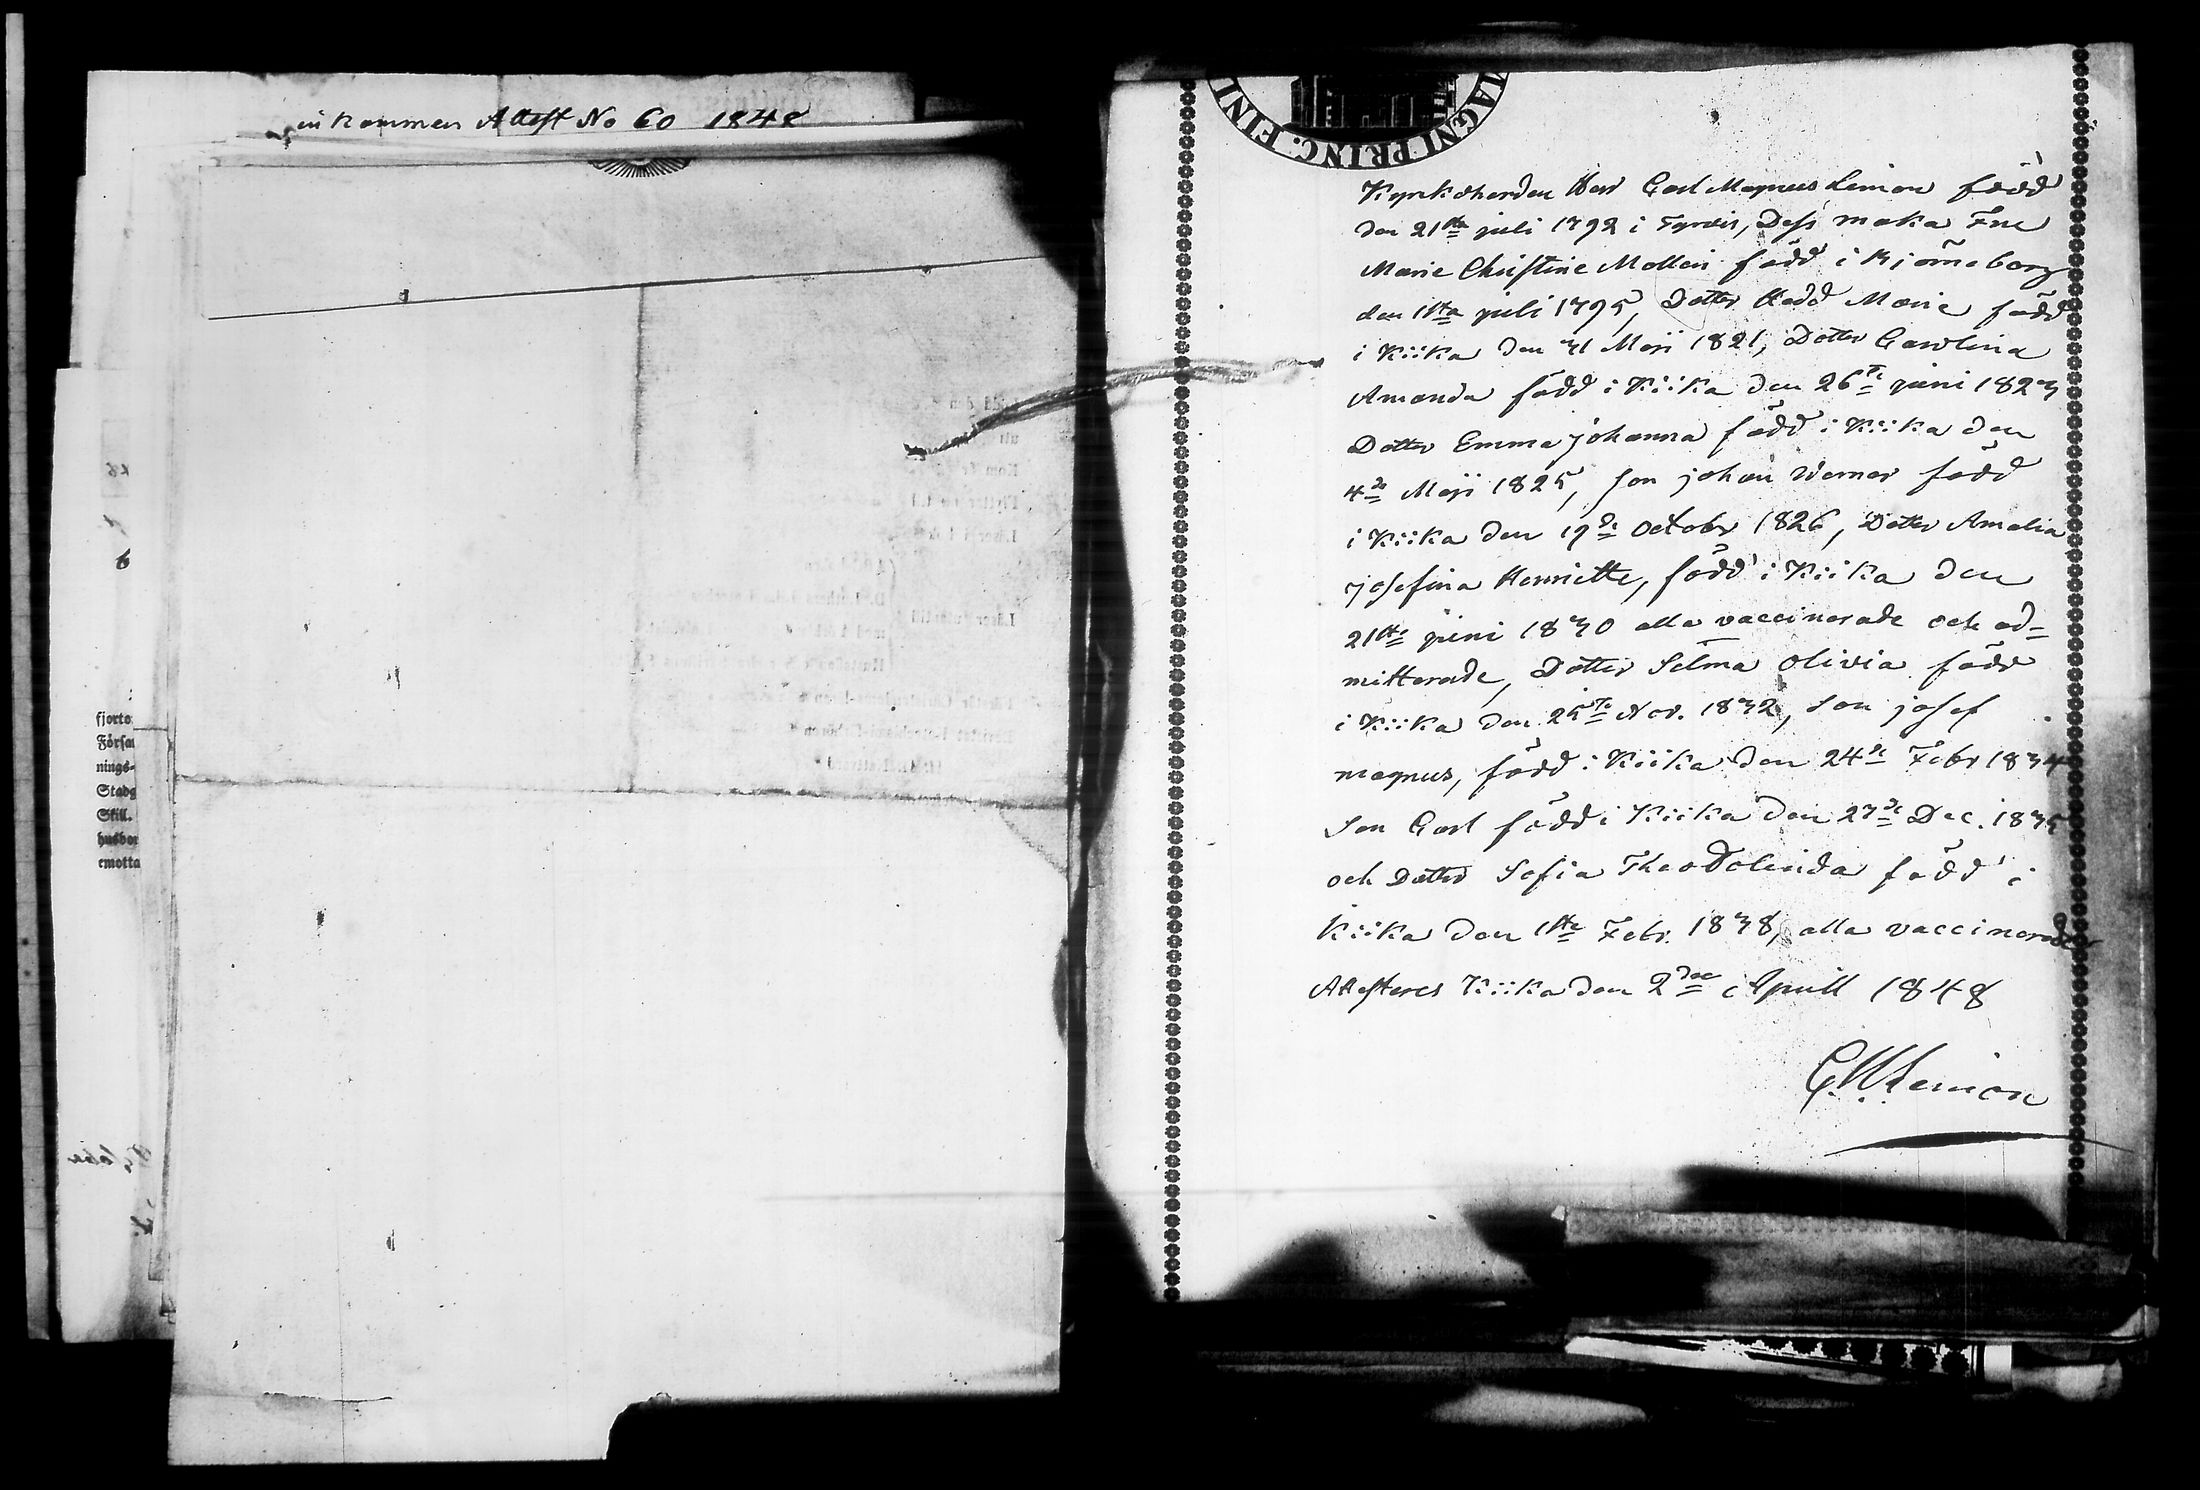 inkommen Attest No 60 1848
fjorto
Försa
nings-
Stadg
Skill.
husbon
emotta
MAGNI PRINC. FINI
Kyrkoherden Herr Carl Magnus Lenion född
den 21sta juli 1792 i Tyrvis, Dess maka Fru
Marie Christine Mollin född i Björneborg
den 1sta juli 1795, Dotter Hedd Marie född
i Kiika den 31 Maji 1821, Dotter Carolina
Amanda född i Kiika den 26te juni 1823
Dotter Emma johanna född i Kiika den
4de Maji 1825, Son johan Werner född
i Kiika den 19de Octobr 1826, Dotter Amalia
josefina Henriette, född i Kiika den
21ste juni 1830 alla vaccinerade och ad=
mitterade, Dotter Selma Olivia född
i Kiika den 25te Nov. 1832, Son josef
magnus, född i Kiika den 24de Febr 1834
Son Carl född i Kiika den 27de Dec. 1835
och Dotter Sofia Theodolinda född i
Kiika den 1ste Febr. 1838, alla vaccinerade
Attesteras Kiika den 2dra April 1848
C.M.Lenion